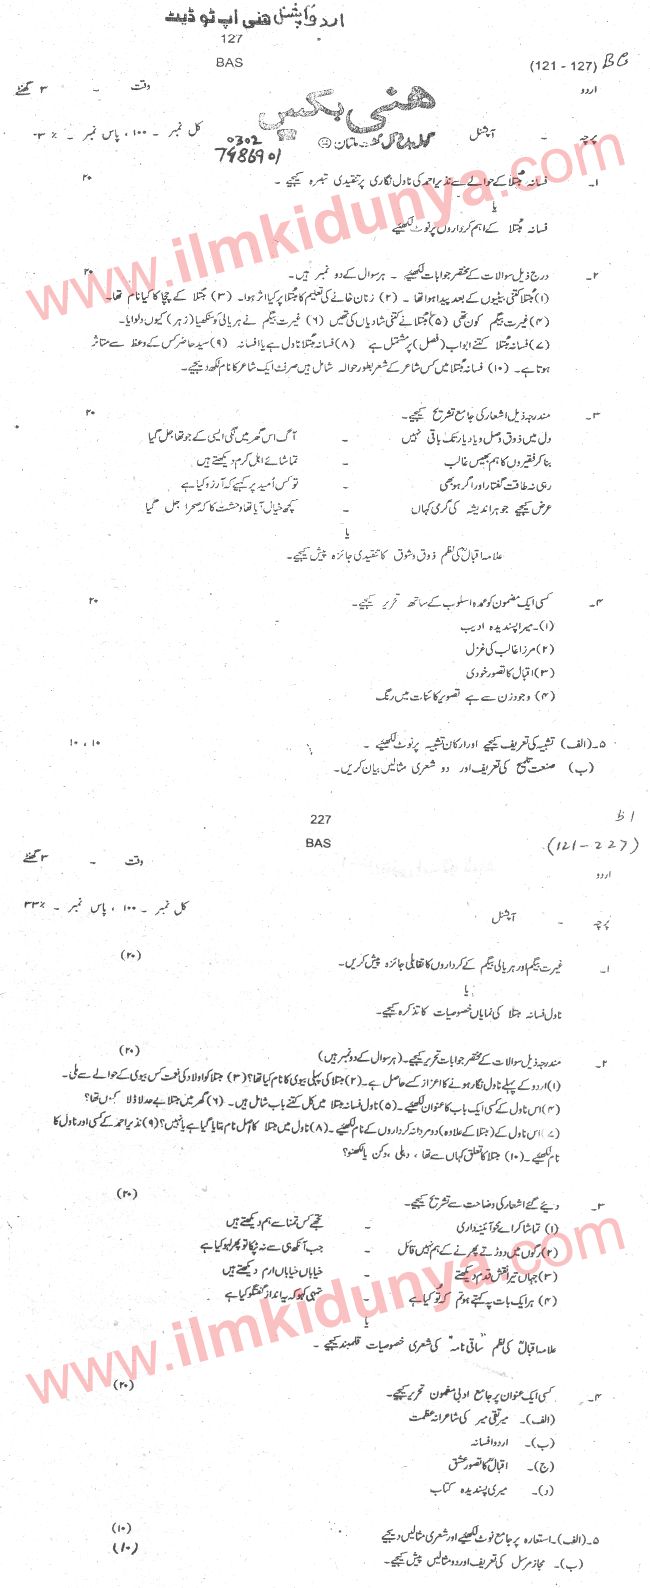 اردو آپشنل ہنی اپ ٹو ڈیٹ
127
BAS
(121 - 127) BG
اردو
وقت ۔ ۳ گھنٹے
ہنی بکس
گول باغ گل گشت ملتان
0302
7486901
پرچہ ۔ آپشنل
کل نمبر ۔ ۱۰۰ ، پاس نمبر ۔ ٪ ۳۰
۱۔ فسانہ مُبتلا کے حوالے سے نذیر احمد کی ناول نگاری پر تنقیدی تبصرہ کیجیے ۔ ۲۰
یا
فسانہ مُبتلا کے اہم کرداروں پر نوٹ لکھیئے
۲۔ درج ذیل سوالات کے مختصر جوابات لکھیئے ۔ ہر سوال کے دو نمبر ہیں ۔ ۲۰
(۱) مُبتلا کتنی بیٹیوں کے بعد پیدا ہوا تھا ۔ (۲) زنان خانے کی تعلیم کا مُبتلا پر کیا اثر ہوا۔ (۳) مُبتلا کے چچا کا کیا نام تھا۔
(۴) غیرت بیگم کون تھی (۵) مُبتلا نے کتنی شادیاں کی تھیں (۶) غیرت بیگم نے ہریالی کو سنکھیا (زہر) کیوں دلوایا۔
(۷) فسانہ مُبتلا کتنے ابواب (فصل) پر مشتمل ہے (۸) فسانہ مُبتلا ناول ہے یا افسانہ (۹) سید حاضر کس کے وعظ سے متاثر
ہوتا ہے۔ (۱۰) فسانہ مُبتلا میں کس شاعر کے شعر بطور حوالہ شامل ہیں صرف ایک شاعر کا نام لکھ دیجیے۔
۳۔ مندرجہ ذیل اشعار کی جامع تشریح کیجیے۔ ۲۰
دل میں ذوق وصل و یاد یار تک باقی نہیں ۔ آگ اس گھر میں لگی ایسی کے جو تھا جل گیا
بنا کر فقیروں کا ہم بھیس غالب ۔ تماشائے اہل کرم دیکھتے ہیں
رہی نہ طاقت گفتار اور اگر ہو بھی ۔ تو کس اُمید پر کہیے کہ آرزو کیا ہے
عرض کیجیے جوہر اندیشہ کی گرمی کہاں ۔ کچھ خیال آیا تھا وحشت کا کہ صحرا جل گیا
یا
علامہ اقبالؒ کی نظم ذوق و شوق کا تنقیدی جائزہ پیش کیجیے۔
۴۔ کسی ایک مضمون کو عمدہ اسلوب کے ساتھ تحریر کیجیے۔ ۲۰
(۱)۔ میرا پسندیدہ ادیب
(۲) مرزا غالب کی غزل
(۳) اقبال کا تصور خودی
(۴) وجود زن سے ہے تصویر کائنات میں رنگ
۵۔ (الف) تشبیہ کی تعریف کیجیے اور ارکان تشبیہ پر نوٹ لکھیئے ۔ ۱۰ ، ۱۰
(ب) صنعت تلمیح کی تعریف اور دو شعری مثالیں بیان کریں۔
227
BAS
B1
(121-227)
اردو
وقت ۔ ۳ گھنٹے
پرچہ ۔ آپشنل
کل نمبر ۔ ۱۰۰ ، پاس نمبر ۔ ٪۳۳
۱۔ غیرت بیگم اور ہریالی بیگم کے کرداروں کا تقابلی جائزہ پیش کریں۔ (۲۰)
یا
ناول فسانہ مبتلا کی نمایاں خصوصیات کا تذکرہ کیجیے۔
۲۔ مندرجہ ذیل سوالات کے مختصر جوابات تحریر کیجیے۔ (ہر سوال کے دو نمبر ہیں) (۲۰)
(۱) اردو کے پہلے ناول نگار ہونے کا اعزاز کسے حاصل ہے۔ (۲) مبتلا کی پہلی بیوی کا نام کیا تھا؟ (۳) مبتلا کو اولاد کی نعمت کس بیوی کے حوالے سے ملی۔
(۴) اس ناول کے کسی ایک باب کا عنوان لکھیئے۔ (۵) ناول فسانہ مبتلا میں کل کتنے باب شامل ہیں۔ (۶) گھر میں مبتلا بے حد لاڈلا کیوں تھا؟
(۷) اس ناول کے (مبتلا کے علاوہ) دو مردانہ کرداروں کے نام لکھیئے۔ (۸) ناول میں مبتلا کا اصل نام بتایا گیا ہے یا نہیں؟ (۹) نذیر احمد کے کسی اور ناول کا
نام لکھیئے۔ (۱۰) مبتلا کا تعلق کہاں سے تھا ، دہلی ، دکن یا لکھنو؟
۳۔ دیئے گئے اشعار کی وضاحت سے تشریح کیجیے۔ (۲۰)
(۱) تماشا کر اے محو آئینہ داری ۔ تجھے کس تمنا سے ہم دیکھتے ہیں
(۲) رگوں میں دوڑتے پھرنے کے ہم نہیں قائل ۔ جب آنکھ ہی سے نہ ٹپکا تو پھر لہو کیا ہے
(۳) جہاں تیرا نقش قدم دیکھتے ۔ خیاباں خیاباں ارم دیکھتے ہیں
(۴) ہر ایک بات پہ کہتے ہو تم کہ تُو کیا ہے ۔ تمہی کہو کہ یہ انداز گفتگو کیا ہے
یا
علامہ اقبالؒ کی نظم "ساقی نامہ" کی شعری خصوصیات قلمبند کیجیے ۔
۴۔ کسی ایک عنوان پر جامع ادبی مضمون تحریر کیجیے۔ (۲۰)
(الف)۔ میر تقی میر کی شاعرانہ عظمت
(ب)۔ اردو افسانہ
(ج)۔ اقبالؒ کا تصور عشق
(د)۔ میری پسندیدہ کتاب
۵۔ (الف)۔ استعارہ پر جامع نوٹ لکھیئے اور شعری مثالیں دیجیے (۱۰)
(ب)۔ مجاز مرسل کی تعریف اور دو مثالیں پیش کیجیے۔ (10)
www.ilmkidunya.com
www.ilmkidunya.com